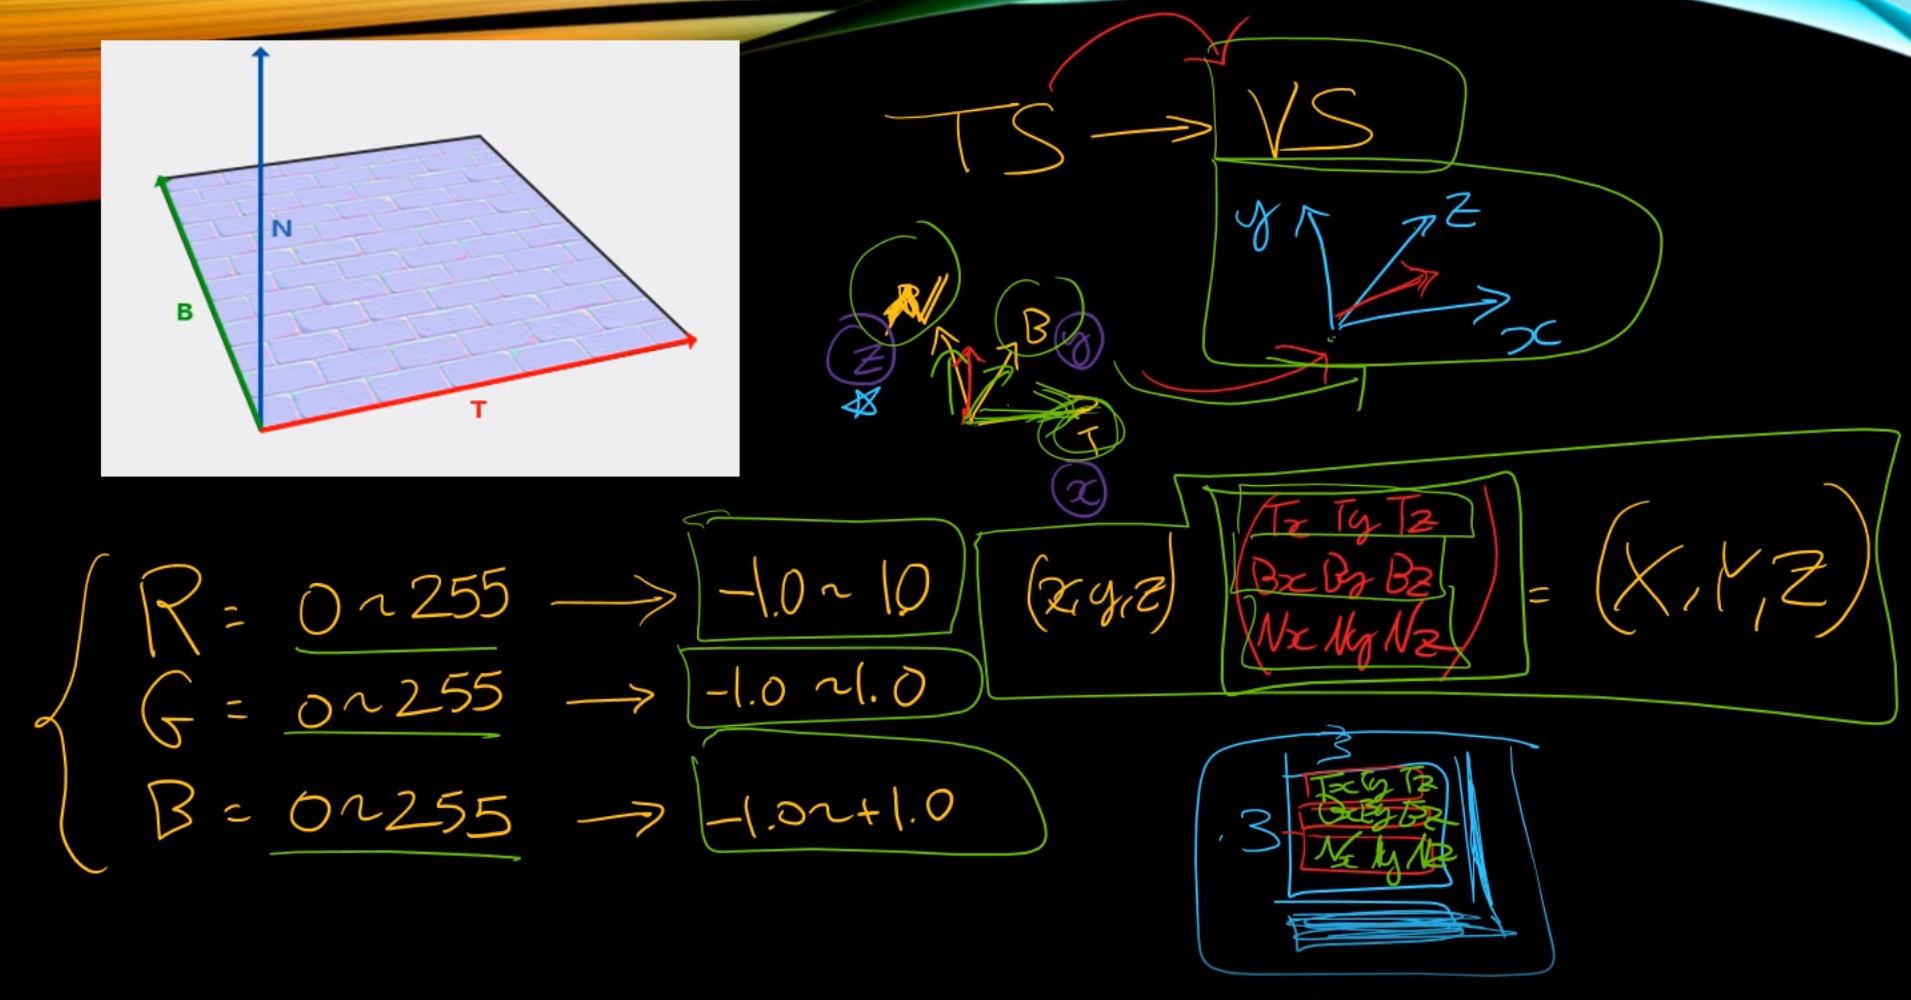 N
B
T
TS → VS
y z x
N B T
z y x
R = 0~255 → -1.0~1.0
G = 0~255 → -1.0~1.0
B = 0~255 → -1.0~+1.0
(x,y,z) = (X,Y,Z)
Tx Ty Tz
Bx By Bz
Nx Ny Nz
3
3
Tx Ty Tz
Bx By Bz
Nx Ny Nz